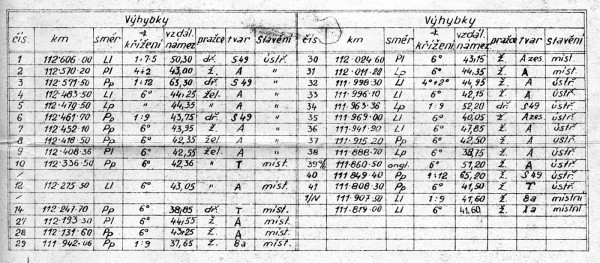 Výhybky Výhybky
čís km směr ∢ křížení vzdál. namez. pražce tvar stavění čís. km směr ∢ křížení vzdál. namez. pražce tvar stavění
1 112·606·00 Ll 1:7·5 50,30 dř. S49 ústř. 30 112·024·60 Pl 6° 43,15 ž. Azes. míst.
2 112·570·20 Pl 4+2 43,00 ž. A " 31 112·011·20 Lp 6° 44,35 ž. A míst.
3 112·571·50 Pp 1:12 63,30 dř. S49 " 32 111·998·30 Ll 4°+2° 44,95 ž. A ústř.
4 112·483·50 Ll 6° 44,25 žel. A " 33 111·996·10 Ll 6° 42,15 ž. A ústř.
5 112·479·50 Lp " 44,35 ž. A " 34 111·963·36 Lp 1:9 52,20 dř. S49 ústř.
6 112·461·70 Pp 1:9 43,75 dř. S49 " 35 111·969·00 Ll 6° 40,05 ž. Azes ústř.
7 112·452·10 Pp 6° 43,95 ž. A " 36 111·941·90 Ll 6° 47,85 ž. A ústř.
8 112·418·50 Pp 6° 42,35 žel. A " 37 111·915·20 Pp 6° 42,50 ž. A ústř.
9 112·408·36 Pl 6° 42,55 žel. A " 38 111·888·70 Lp 6° 38,75 ž. A ústř.
10 112·336·50 Pp 6° 42,36 " T míst. 39 111·860·50 angl. 6° 51,20 ž. A ústř.
40 111·849·40 Pp 1:12 65,20 ž. S49 ústř.
12 112·275·50 Ll 6° 43,05 " A míst. 41 111·808·30 Pp 6° 41,50 ž. T ústř.
1/IV 111·907·50 Ll 1:9 41,60 ž. 8a místní
14 112·247·70 Pp 6° 38,85 dř. T míst. 111·819·00 Ll 6° 41,60 ž. místní
27 112·193·30 Pl 6° 44,55 ž. A míst.
28 112·131·60 Pp 6° 43,25 ž. A míst.
29 111·942·06 Pp 1:9 37,65 ž. 8a míst.